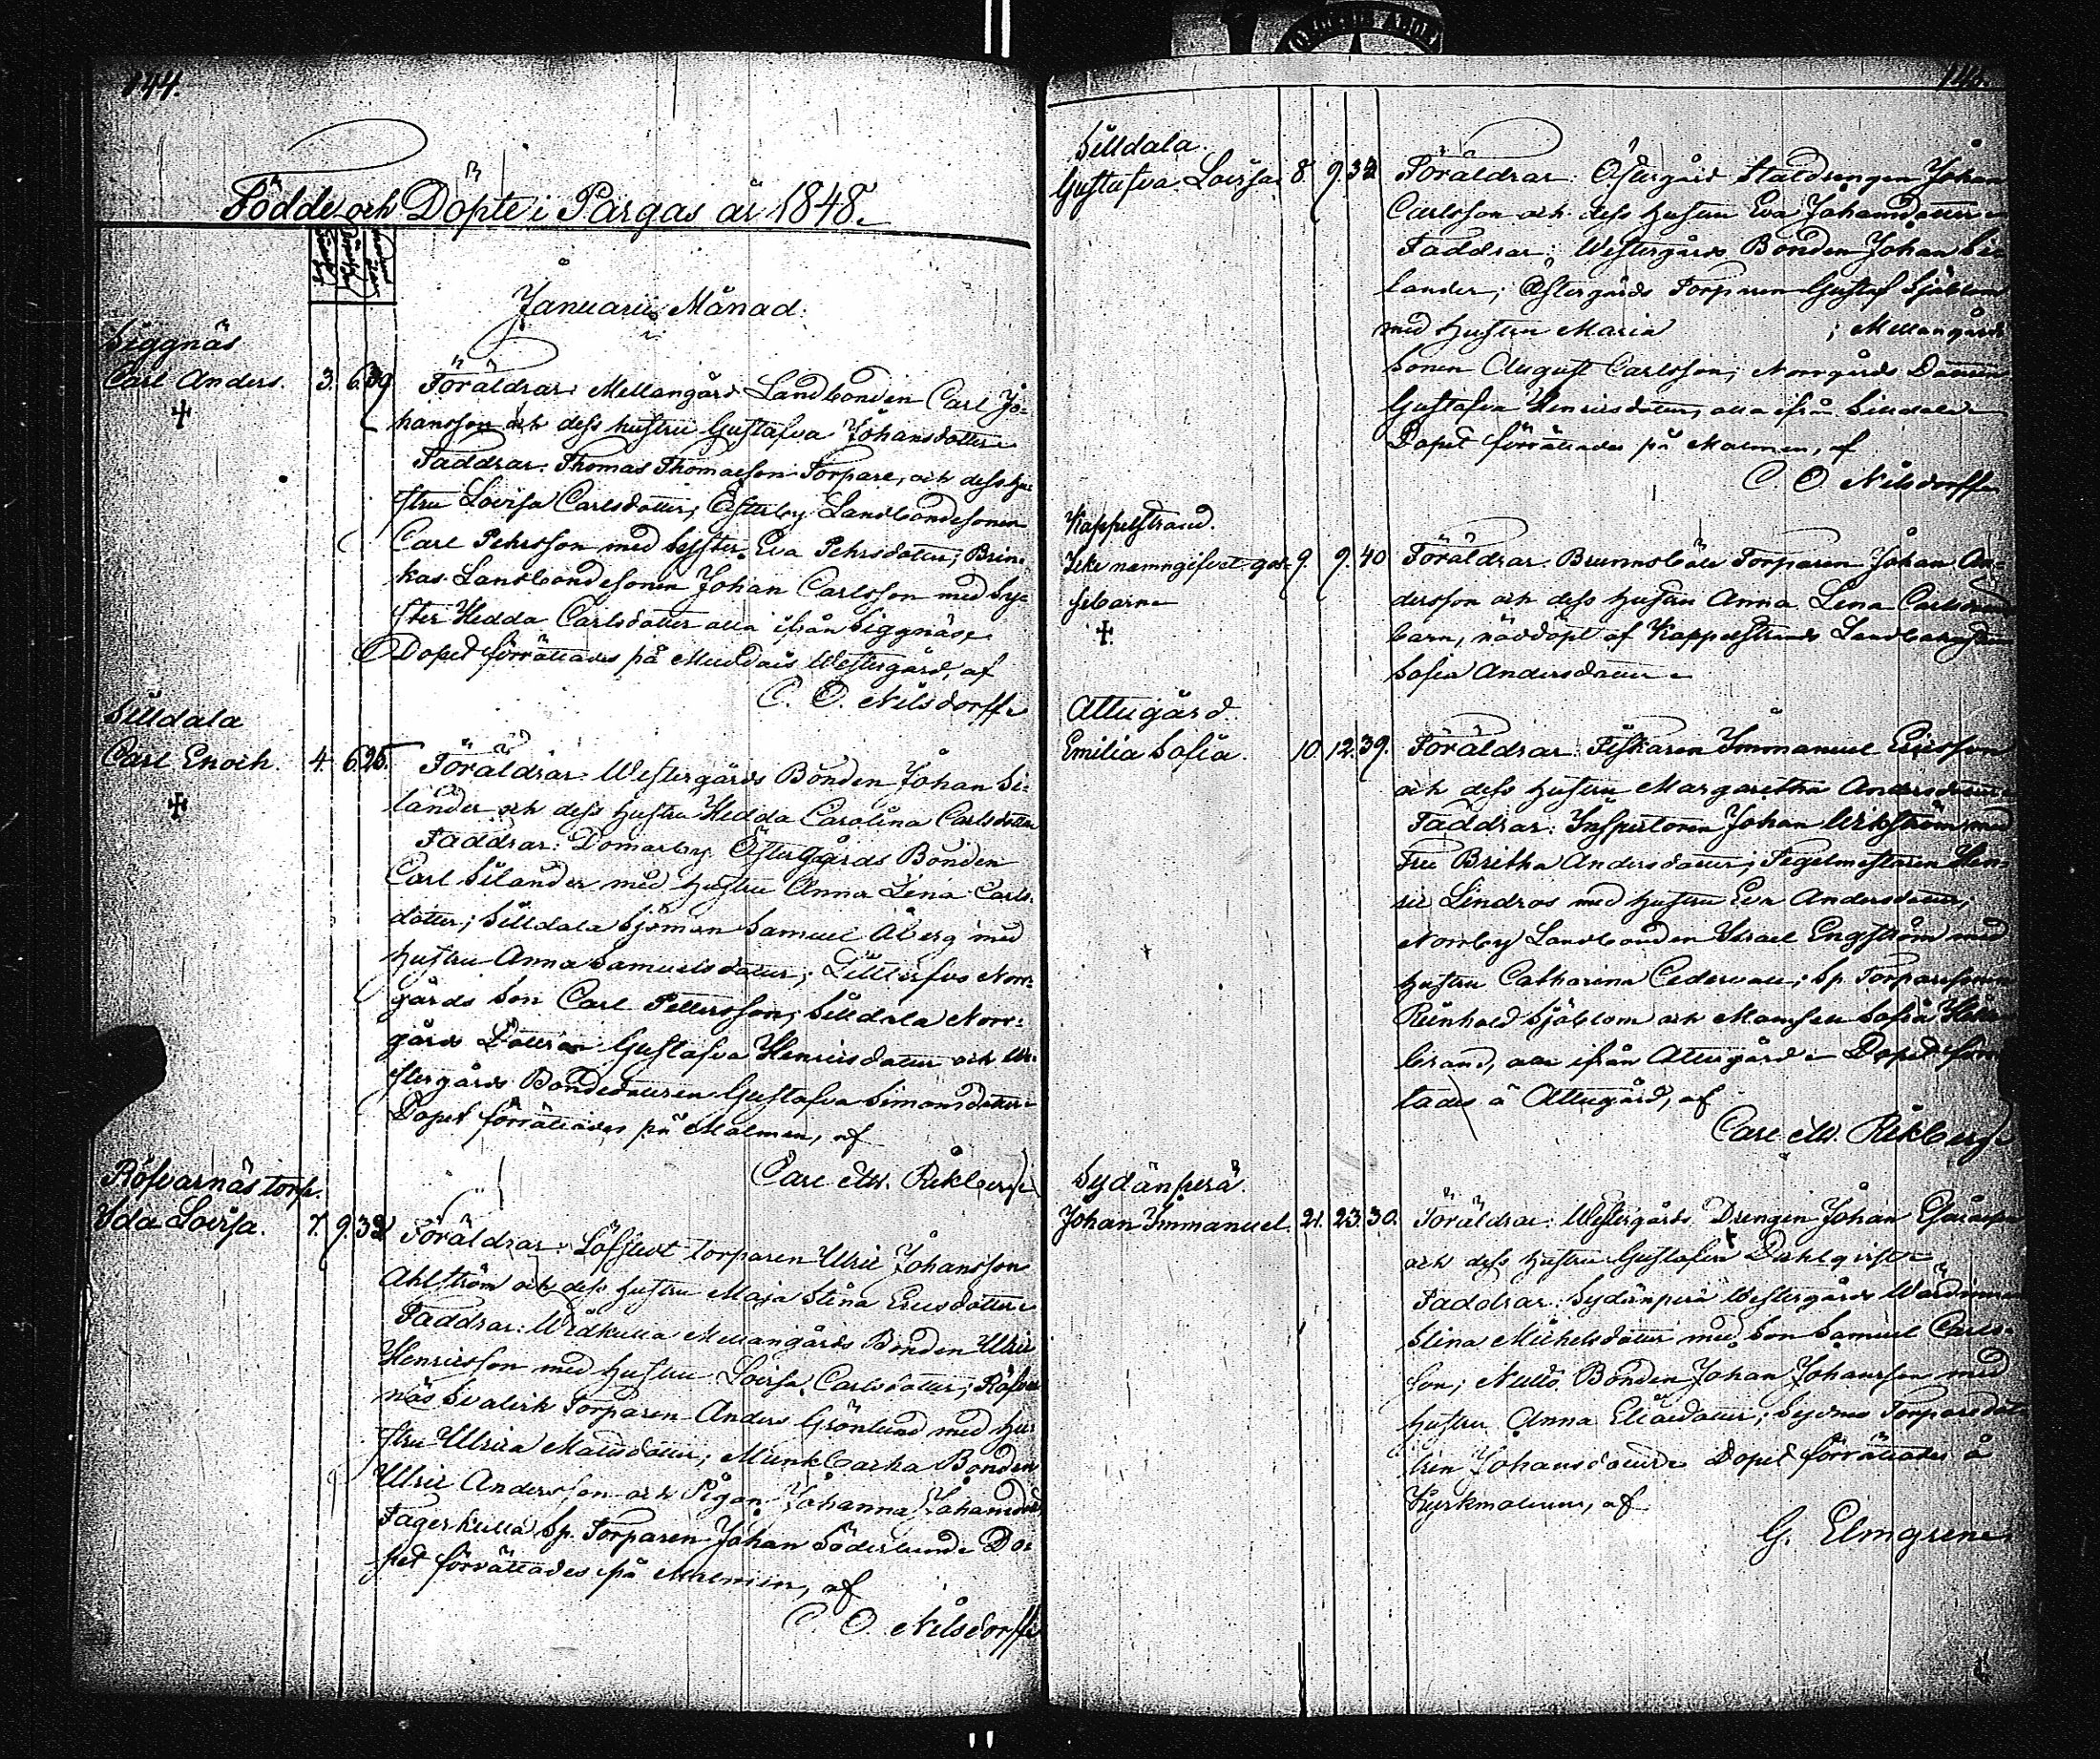 144.
Födde och Döpte i Pargas år 1848.
Januarii Månad.
Siggnäs
Carl Anders. 3. 6. 39
Föräldrar: Mellangårds Landbonden Carl Jo-
hansson och dess hustru Gustafva Johansdotter
Faddrar: Thomas Thomasson Torpare, och dess hu-
stru Lovisa Carlsdotter; Österby Landbondesonen
Carl Pehrsson med Syster Eva Pehrsdotter; Brin-
kas Landbondesonen Johan Carlsson med Sy-
ster Hedda Carlsdotter alla ifrån Siggnäs.
Dopet förrättades på Muddais Westergård, af
C. O. Nilsdorff
Silldala
Carl Enoch. 4. 6. 25.
Föräldrar: Westergårds Bonden Johan Si-
lander och dess hustru Hedda Carolina Carlsdotter
Faddrar: Domarby Östergårds Bonden
Carl Silander med hustru Anna Lena Carls-
dotter; Silldala Sjöman Samuel Åberg med
hustru Anna Samuelsdotter; Norr-
gårds Son Carl Pettersson; Silldala Norr-
gårds Dottren Gustafva Henricsdotter och We-
stergårds Bondedottren Gustafva Simonsdotter
Dopet förrättades på Malmen, af
Carl M. Rikberg
Röfvarnäs torp.
Ida Lovisa. 7. 9. 32
Föräldrar: torparen Ulric Johansson
Ahlström och dess hustru Maja Stina Ericsdotter
Faddrar: Wådkulla Mellangårds Bonden Ulric
Henricsson med hustru Lovisa Carlsdotter; Röfvar-
näs Torparen Anders Grönlund med hu-
stru Ulrica Matsdotter; Munkbacka Bonden
Ulric Andersson och Pigan Johanna Johansdotter
Fagerkulla Sp. Torparen Johan Söderlund. Do-
pet förrättades på Malmen, af
C. O. Nilsdorff
145.
Silldala.
Gustafva Lovisa. 8 9. 32
Föräldrar: Östergårds Staldrengen Johan
Carlsson och dess hustru Eva Johansdotter
Faddrar: Westergårds Bonden Johan Si-
lander; Östergårds Torparen Gustaf Sjöblom
med hustru Maria ; Mellangårds
Sonen August Carlsson; Norrgårds Dottren
Gustafva Henricsdotter, alla ifrån Silldala
Dopet förrättades på Malmen, af
C. O. Nilsdorff
Kappelstrand.
Icke namngifvet gos- 9. 9. 40
sebarn
Föräldrar: Brunnsböle Torparen Johan An-
dersson och dess hustru Anna Lena
barn, nöddöpt af Kappelstrands
Sofia Andersdotter
Attugård.
Emilia Sofia. 10. 12. 39.
Föräldrar: Fiskaren Immanuel Ericsson
och dess hustru Margaretha Andersdotter
Faddrar: Inspectoren Johan Wikström med
Fru Britha Andersdotter; Tegelmestaren Hen-
ric Lindros med hustru Eva Andersdotter;
Norrby Landbonden Israel Engström med
hustru Catharina Cedervall; Sp. Torparesonen
Reinhold Sjöblom och Mamsell Sofia
brand, alla ifrån Attugård. Dopet förrät-
tades å Attugård, af
Carl M. Rikberg
Sydänperä.
Johan Immanuel. 21. 23. 30.
Föräldrar: Westergårds Drengen Johan
och dess hustru Gustafva Dahlqvist
Faddrar: Sydänperä Westergårds Wärdinnan
Stina Michelsdotter med Son Samuel Carls-
son; Bonden Johan Johansson med
hustru Anna Eliædotter; Torparedot-
tren Johansdotter Dopet förrättades å
Kyrkmalmen, af
G. Elmgren